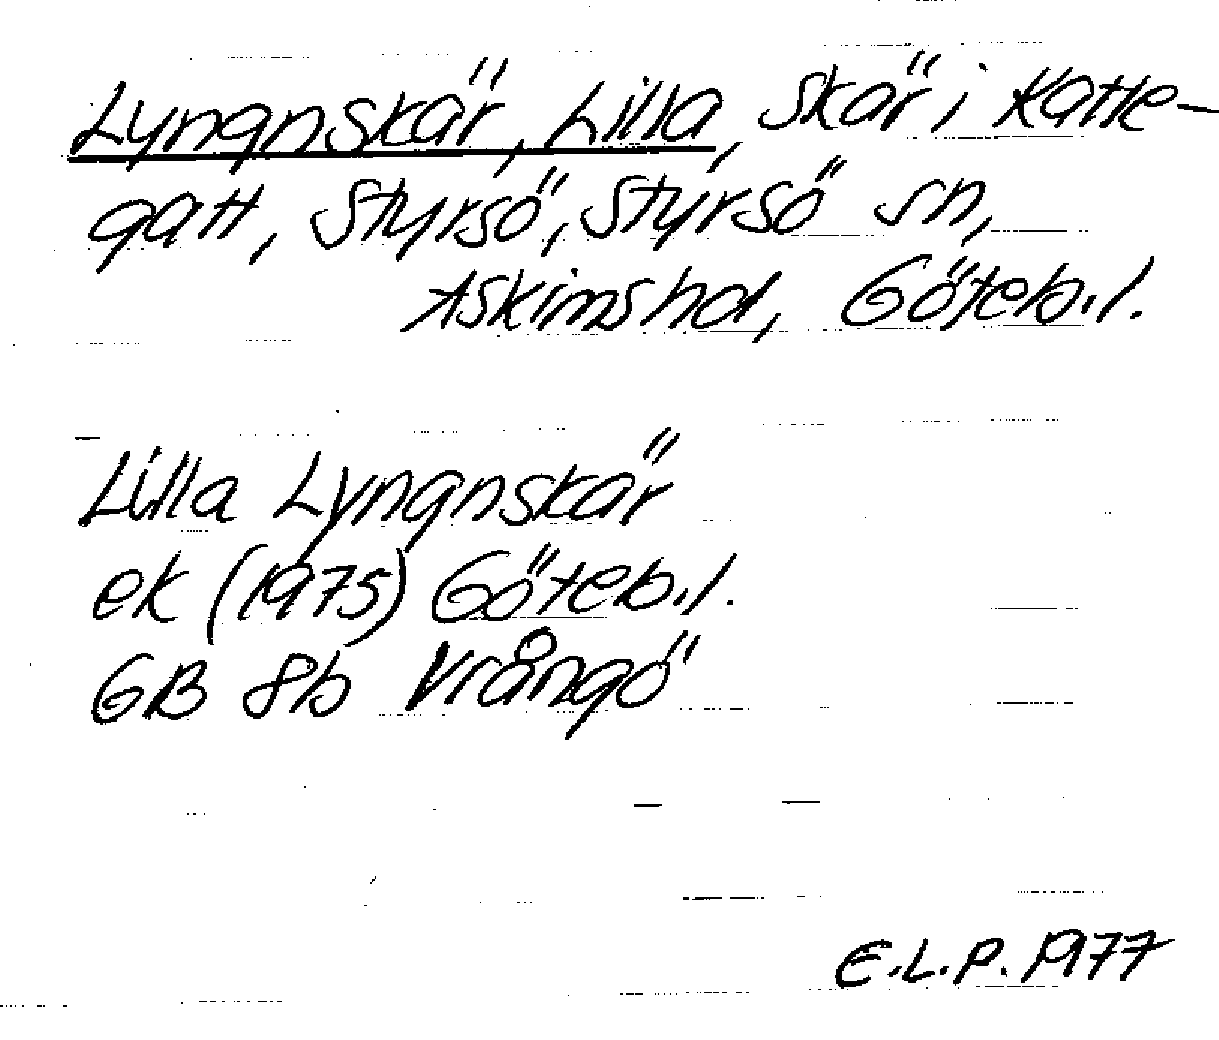 Lyngnskär, Lilla, skär i Katte-
gatt, Styrsö, Styrsö sn,
Askimshd, Göteb.l.
Lilla Lyngnskär
ek (1975) Göteb.l.
GB 8b Vrångö
E.L.P. 1977